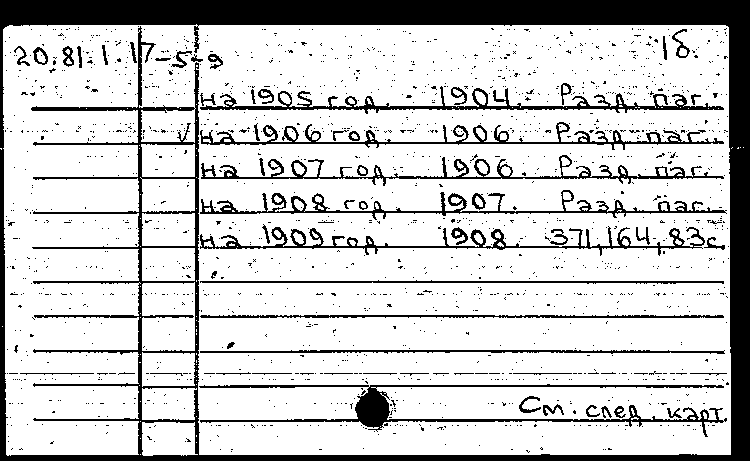 20.81.1.17-5-9 1б.
на 1905 год. - 1904. - Разд. паг.
√ на 1906 год. - 1906. - Разд. паг.
на 1907 год. - 1906. Разд. паг.
на 1908 год. 1907. Разд. паг.
на 1909 год. 1908. 371,164,83с.
См. след. карт.